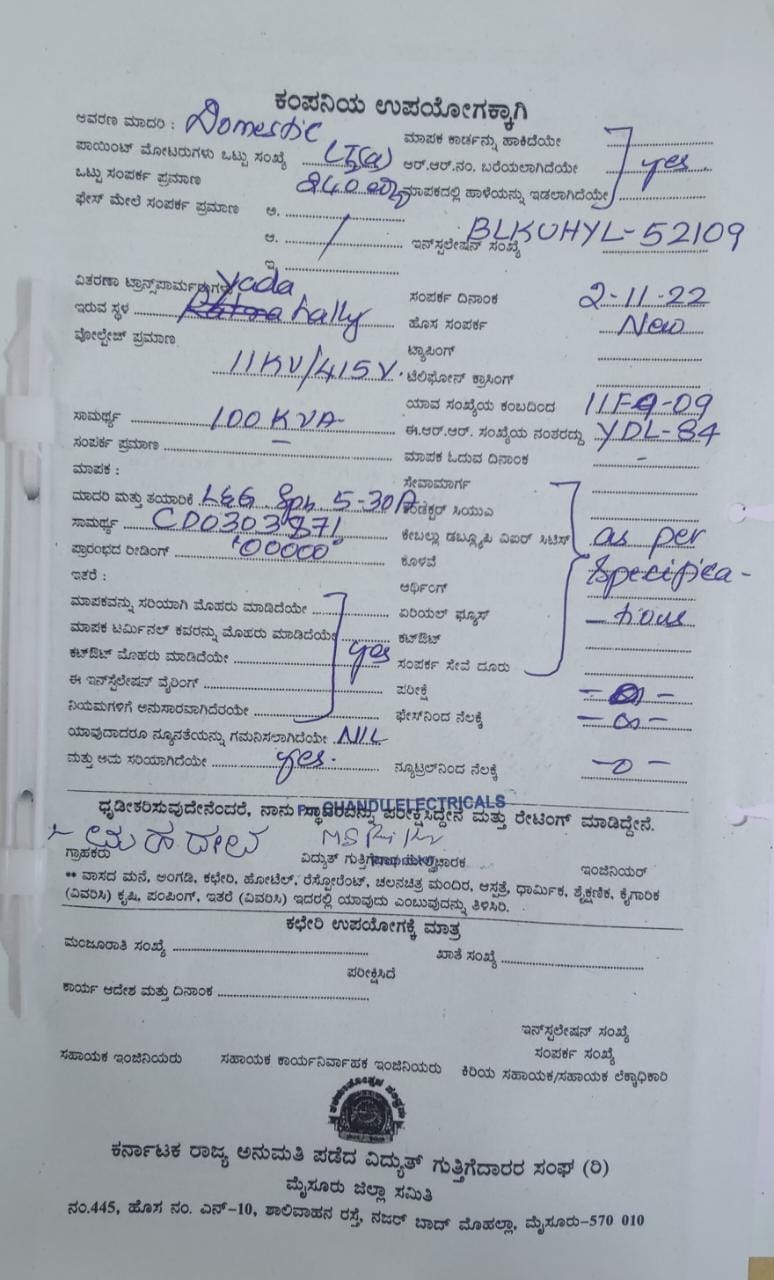 ಕಂಪನಿಯ ಉಪಯೋಗಕ್ಕಾಗಿ
ಆವರಣ ಮಾದರಿ : Domestic
ಮಾಪಕ ಕಾರ್ಡನ್ನು ಹಾಕಿದೆಯೇ
ಪಾಯಿಂಟ್ ಮೋಟರುಗಳು ಒಟ್ಟು ಸಂಖ್ಯೆ LT2(a) ಆರ್.ಆರ್.ನಂ. ಬರೆಯಲಾಗಿದೆಯೇ yes
ಒಟ್ಟು ಸಂಪರ್ಕ ಪ್ರಮಾಣ 240 ಮಾಪಕದಲ್ಲಿ ಹಾಳೆಯನ್ನು ಇಡಲಾಗಿದೆಯೇ
ಫೇಸ್ ಮೇಲೆ ಸಂಪರ್ಕ ಪ್ರಮಾಣ ಅ.
ಆ. ಇನ್‌ಸ್ಟಲೇಷನ್ ಸಂಖ್ಯೆ BLKUHYL-52109
ಇ
ವಿತರಣಾ ಟ್ರಾನ್ಸ್‌ಪಾರ್ಮರ್‌ಗಳು Yada ಸಂಪರ್ಕ ದಿನಾಂಕ 2-11-22
ಇರುವ ಸ್ಥಳ hally ಹೊಸ ಸಂಪರ್ಕ New
ವೋಲ್ಟೇಜ್ ಪ್ರಮಾಣ ಟ್ಯಾಪಿಂಗ್
11KV/415V. ಟೆಲಿಫೋನ್ ಕ್ರಾಸಿಂಗ್
ಯಾವ ಸಂಖ್ಯೆಯ ಕಂಬದಿಂದ 11F9-09
ಸಾಮರ್ಥ್ಯ 100 KVA ಈ.ಆರ್.ಆರ್. ಸಂಖ್ಯೆಯ ನಂತರದ್ದು YDL-84
ಸಂಪರ್ಕ ಪ್ರಮಾಣ - ಮಾಪಕ ಓದುವ ದಿನಾಂಕ -
ಮಾಪಕ : ಸೇವಾಮಾರ್ಗ
ಮಾದರಿ ಮತ್ತು ತಯಾರಿಕೆ L&G Sph 5-30A ಕಂಡಕ್ಟರ್ ಸಿಯುಎ
ಸಾಮರ್ಥ್ಯ ಕೇಬಲ್ಲು ಡಬ್ಲ್ಯೂಪಿ ವಿಐರ್ ಸಿಟಿಸ್ as per
ಪ್ರಾರಂಭದ ರೀಡಿಂಗ್ '00000' ಕೊಳವೆ Specifica-
ಇತರೆ : ಆರ್ಥಿಂಗ್
ಮಾಪಕವನ್ನು ಸರಿಯಾಗಿ ಮೊಹರು ಮಾಡಿದೆಯೇ ಏರಿಯಲ್ ಫ್ಯೂಸ್ tions
ಮಾಪಕ ಟರ್ಮಿನಲ್ ಕವರನ್ನು ಮೊಹರು ಮಾಡಿದೆಯೇ ಕಟ್‌ಔಟ್
ಕಟ್‌ಔಟ್ ಮೊಹರು ಮಾಡಿದೆಯೇ yes ಸಂಪರ್ಕ ಸೇವೆ ದೂರು
ಈ ಇನ್‌ಸ್ಟೆಲೇಷನ್ ವೈರಿಂಗ್ ಪರೀಕ್ಷೆ
ನಿಯಮಗಳಿಗೆ ಅನುಸಾರವಾಗಿದೆರಯೇ ಫೇಸ್‌ನಿಂದ ನೆಲಕ್ಕೆ
ಯಾವುದಾದರೂ ನ್ಯೂನತೆಯನ್ನು ಗಮನಿಸಲಾಗಿದೆಯೇ NIL
ಮತ್ತು ಅದು ಸರಿಯಾಗಿದೆಯೇ yes. ನ್ಯೂಟ್ರಲ್‌ನಿಂದ ನೆಲಕ್ಕೆ -0-
CHANDU ELECTRICALS
ಧೃಡೀಕರಿಸುವುದೇನೆಂದರೆ, ನಾನು ಸ್ಥಾವರವನ್ನು ಪರೀಕ್ಷಿಸಿದ್ದೇನೆ ಮತ್ತು ರೇಟಿಂಗ್ ಮಾಡಿದ್ದೇನೆ.
ಗ್ರಾಹಕರು ವಿದ್ಯುತ್ ಇಂಜಿನಿಯರ್
** ವಾಸದ ಮನೆ, ಅಂಗಡಿ, ಕಛೇರಿ, ಹೋಟೆಲ್, ರೆಸ್ಟೋರೆಂಟ್, ಚಲನಚಿತ್ರ ಮಂದಿರ, ಆಸ್ಪತ್ರೆ, ಧಾರ್ಮಿಕ, ಶೈಕ್ಷಣಿಕ, ಕೈಗಾರಿಕ
(ವಿವರಿಸಿ) ಕೃಷಿ, ಪಂಪಿಂಗ್, ಇತರೆ (ವಿವರಿಸಿ) ಇದರಲ್ಲಿ ಯಾವುದು ಎಂಬುವುದನ್ನು ತಿಳಿಸಿರಿ.
ಕಛೇರಿ ಉಪಯೋಗಕ್ಕೆ ಮಾತ್ರ
ಮಂಜೂರಾತಿ ಸಂಖ್ಯೆ ಖಾತೆ ಸಂಖ್ಯೆ
ಪರೀಕ್ಷಿಸಿದೆ
ಕಾರ್ಯ ಆದೇಶ ಮತ್ತು ದಿನಾಂಕ
ಇನ್‌ಸ್ಟಲೇಷನ್ ಸಂಖ್ಯೆ
ಸಂಪರ್ಕ ಸಂಖ್ಯೆ
ಸಹಾಯಕ ಇಂಜಿನಿಯರು ಸಹಾಯಕ ಕಾರ್ಯನಿರ್ವಾಹಕ ಇಂಜಿನಿಯರು ಕಿರಿಯ ಸಹಾಯಕ/ಸಹಾಯಕ ಲೆಕ್ಕಾಧಿಕಾರಿ
ಕರ್ನಾಟಕ ರಾಜ್ಯ ಅನುಮತಿ ಪಡೆದ ವಿದ್ಯುತ್ ಗುತ್ತಿಗೆದಾರರ ಸಂಘ (ರಿ)
ಮೈಸೂರು ಜಿಲ್ಲಾ ಸಮಿತಿ
ನಂ.445, ಹೊಸ ನಂ. ಎನ್-10, ಶಾಲಿವಾಹನ ರಸ್ತೆ, ನಜರ್ ಬಾದ್ ಮೊಹಲ್ಲಾ, ಮೈಸೂರು-570 010